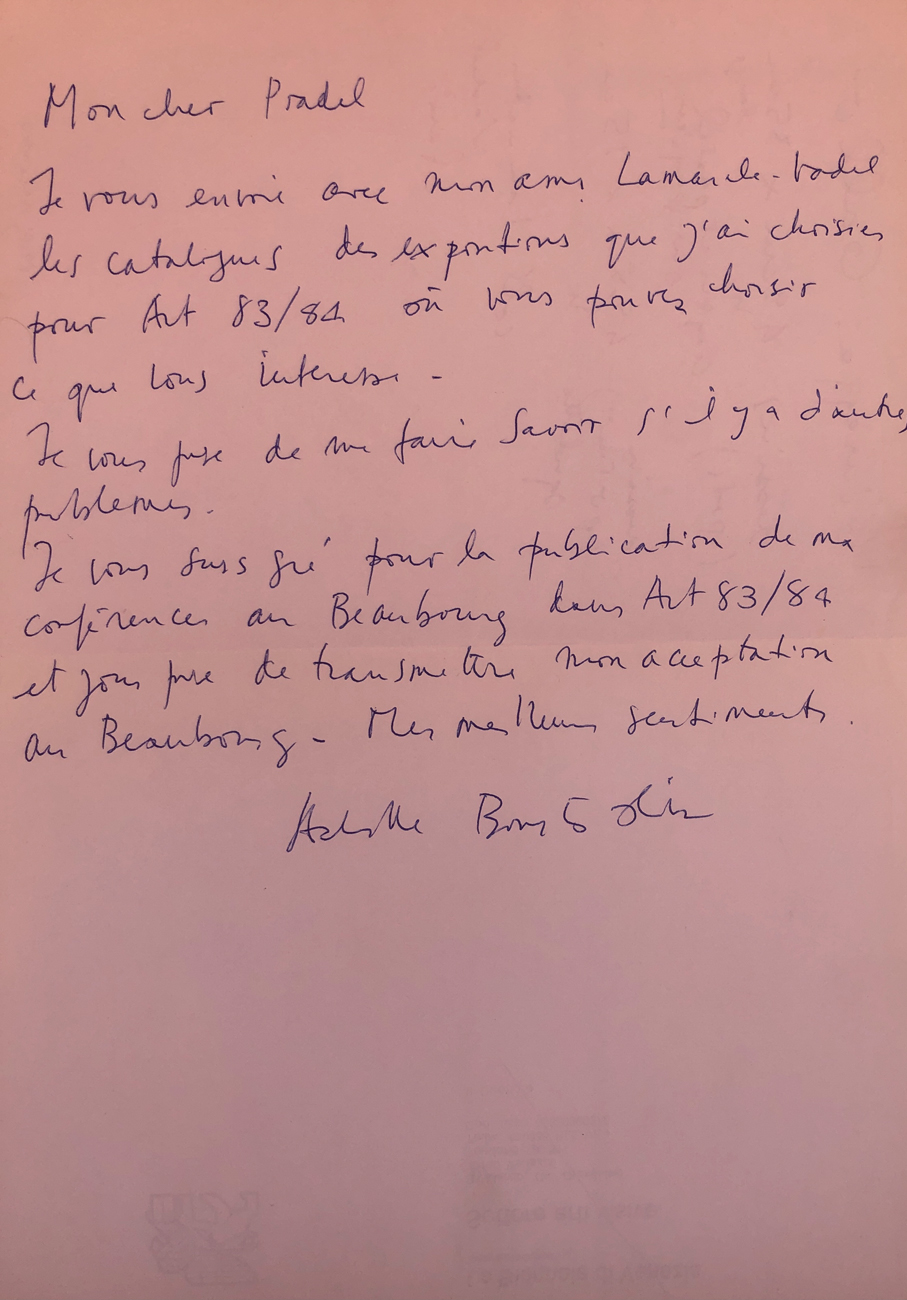 Mon cher Pradel
Je vous envoie avec mon ami Lamarche-Vadel
les catalogues des expositions que j'ai choisies
pour Art 83/84 où vous pouvez choisir
ce que vous interesse -
Je vous prie de me faire savoir s'il y a d'autres
problemes.
Je vous suis gré pour la publication de ma
conférences au Beaubourg dans Art 83/84
et vous prie de transmettre mon acceptation
au Beaubourg - Mes meilleurs sentiments.
Achille Bonito Oliva